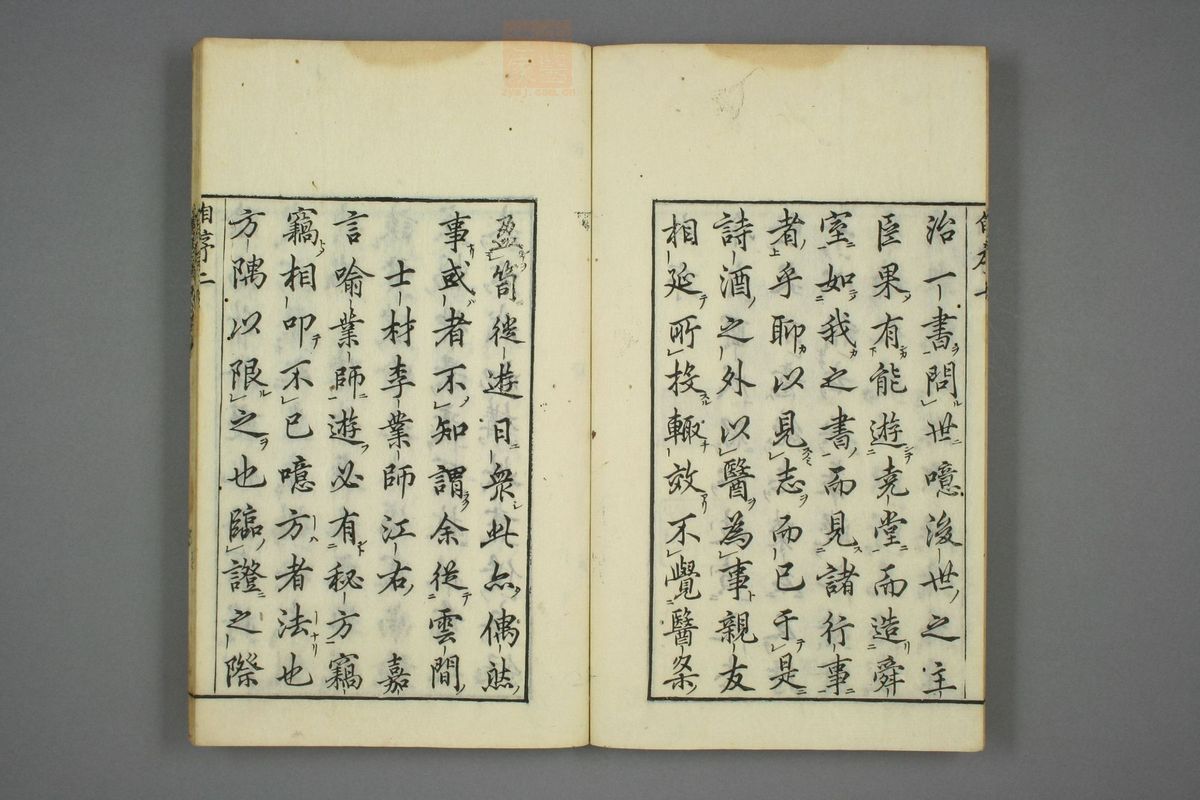 治一書問世噫後世之主
臣果有能遊堯堂而造舜
室如我之書而見諸行事
者乎聊以見志而已于是
詩酒之外以醫為事親友
相延所投輙效不覺醫案
盈笥從遊日衆此亦偶然
事或者不知謂余從雲間
士材李業師江右嘉
言喻業師遊必有秘方竊
竊相叩不已噫方者法也
方隅以限之也臨證之際
自序二
zysj.com.cn